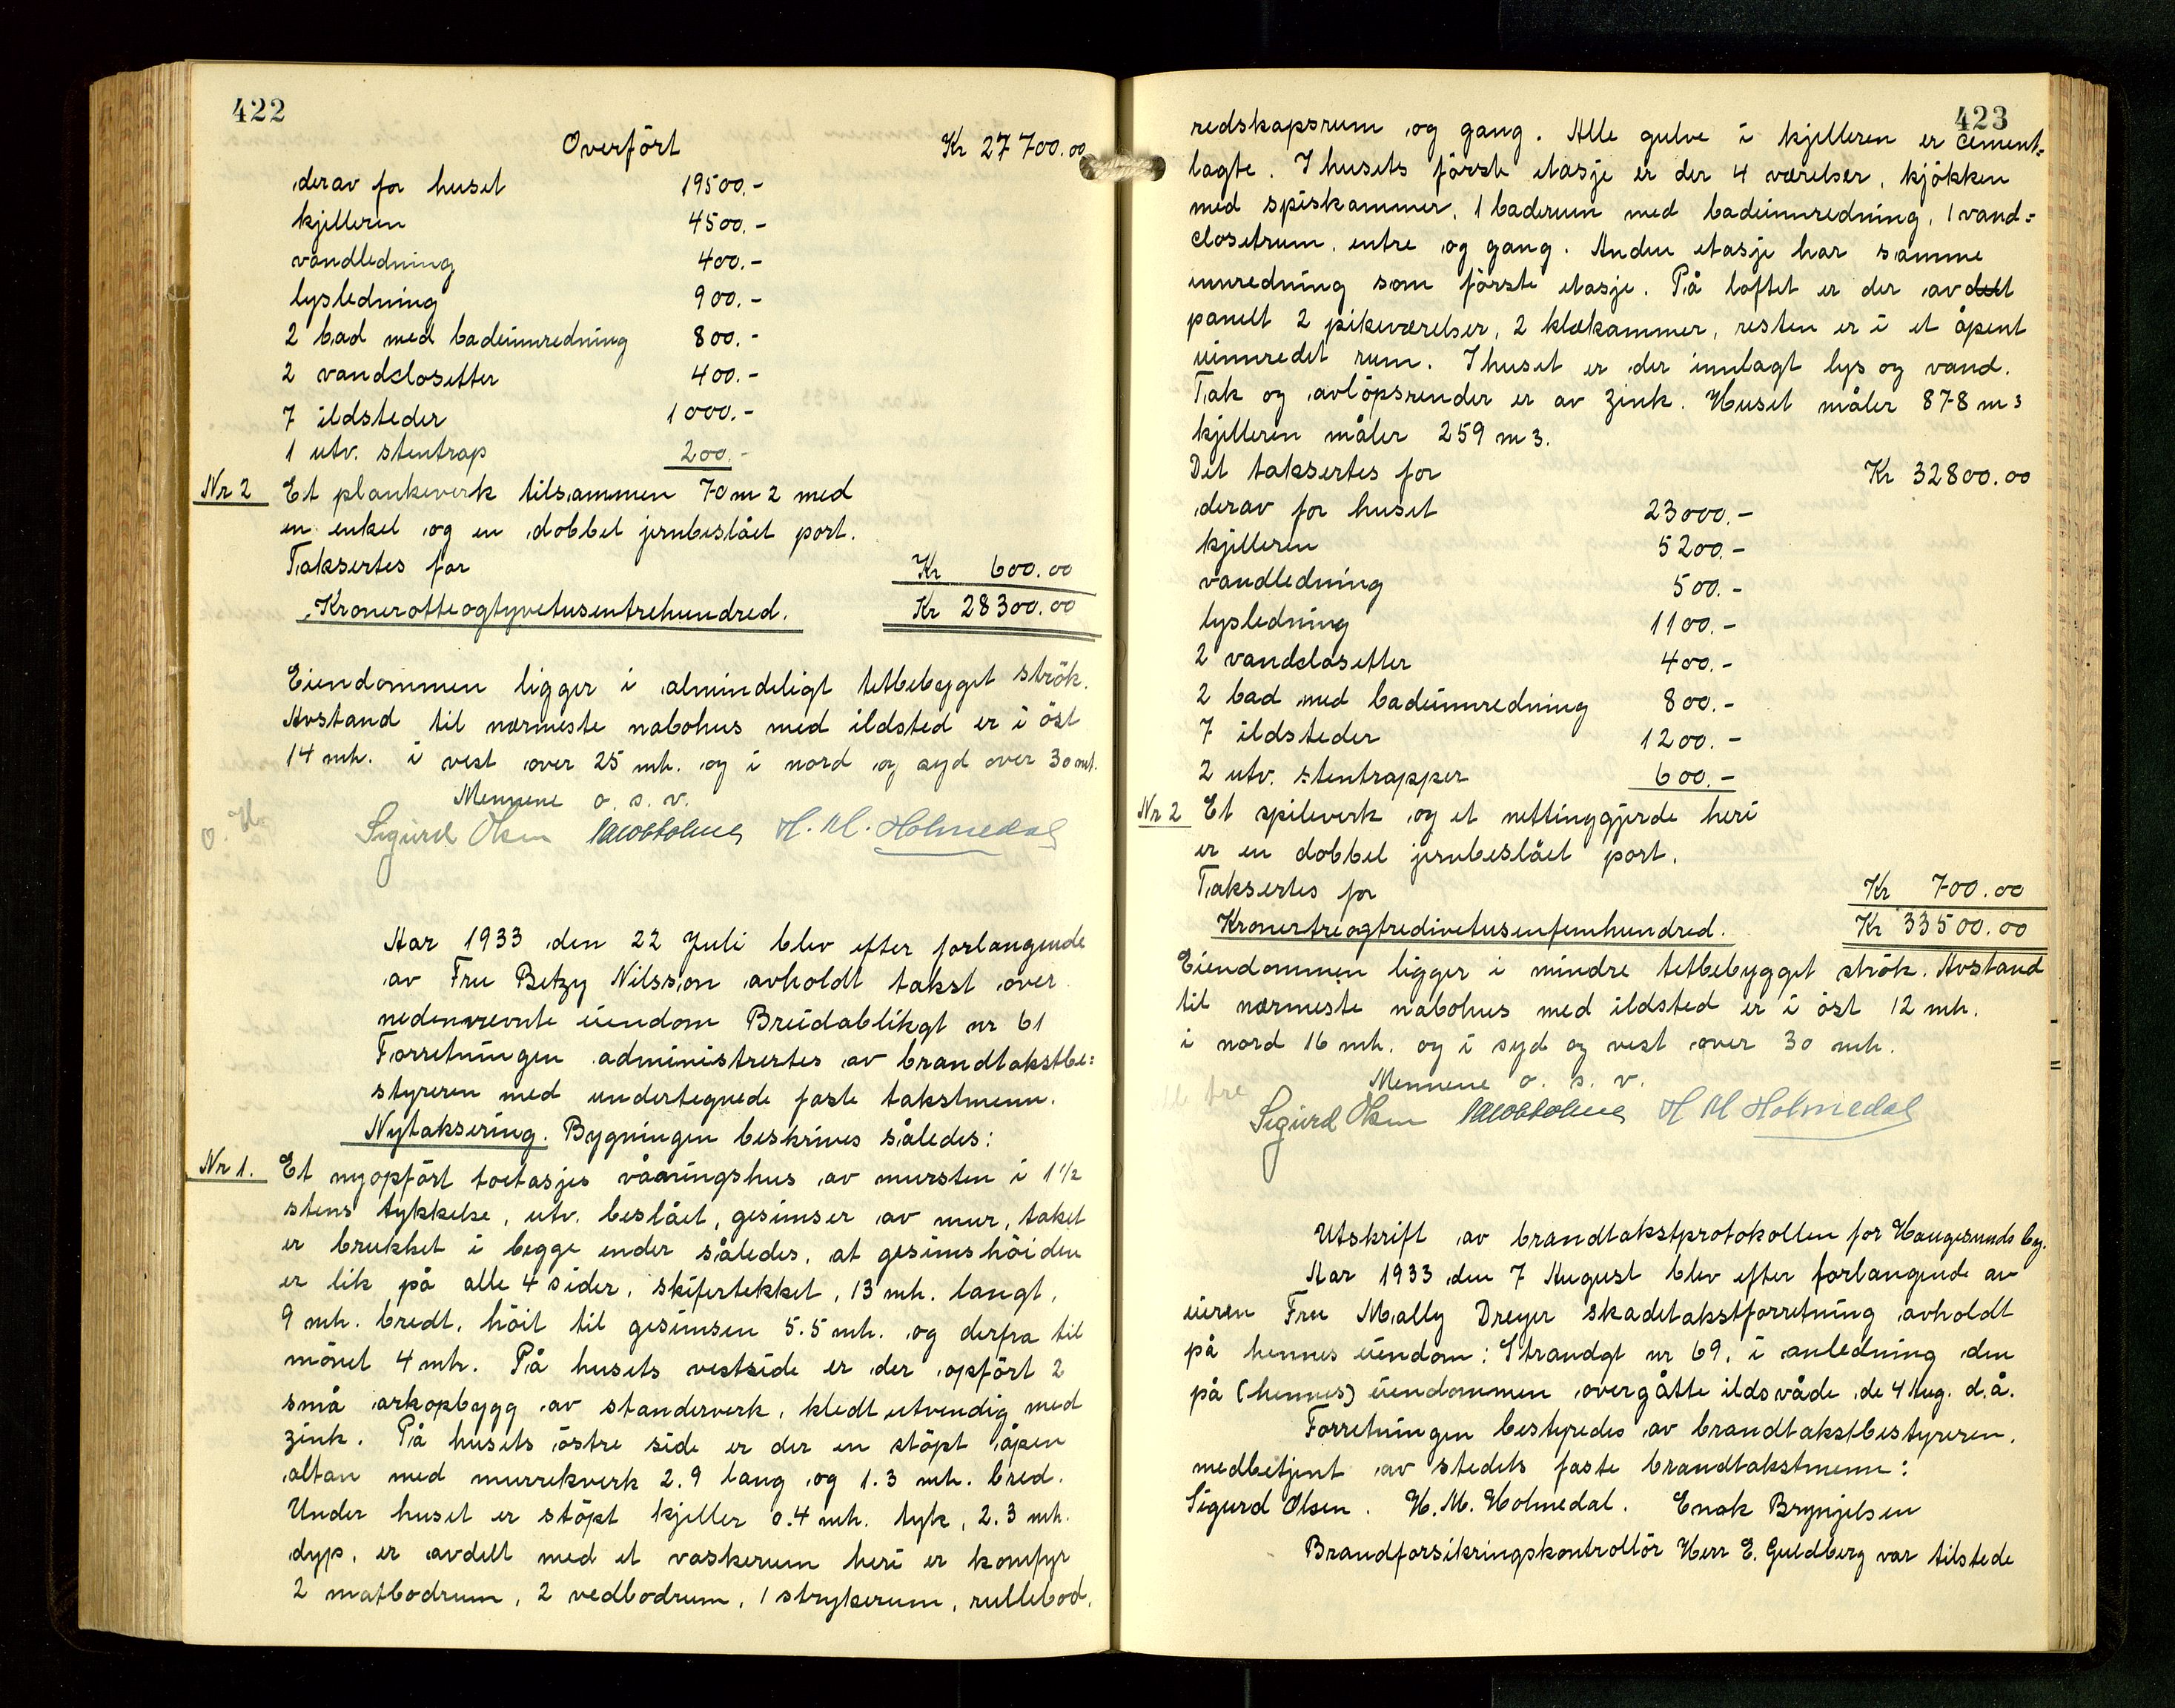 422
Overført Kr 27700.00
derav for huset 19500.-
kjelleren 4500.-
vandledning 400.-
lysledning 900.-
2 bad med badeinnredning 800.-
2 vandclosetter 400.-
7 ildsteder 1000.-
1 utv. stentrap 200.-
Nr 2 Et plankeverk tilsammen 70 m2 med
en enkel og en dobbel jernbeslået port.
Taksertes for Kr 600.00
Kronerotteogtyvetusentrehundred. Kr 28300.00
Eiendommen ligger i almindeligt tetbebygget strök.
Avstand til nærmeste nabohus med ildsted er i öst
14 mtr. i vest over 25 mtr. og i nord og syd over 30 mt.
Mennene o. s. v.
Sigurd Olsen H. M. Holmedal
Aar 1933 den 22 Juli blev efter forlangende
av Fru Betzy Nilsson avholdt takst over
nedenævnte eiendom Breidablikgt nr 61
Forretningen administrertes av brandtakstbe=
styreren med undertegnede faste takstmenn.
Nytaksering. Bygningen beskrives således:
Nr 1. Et nyopført toetasjes våningshus av mursten i 1 1/2
stens tykkelse, utv. beslået, gesimser av mur, taket
er brukket i begge ender således, at gesimshöiden
er lik på alle 4 sider, skifertekket, 13 mtr. langt,
9 mtr. bredt, höit til gesimsen 5.5 mtr. og derfra til
mönet 4 mtr. På husets vestside er der opfört 2
små arkopbygg av standerverk, kledt utvendig med
zink. På husets östre side er der en stöpt åpen
altan med murrekverk 2.9 lang og 1.3 mtr. bred.
Under huset er stöpt kjeller 0.4 mtr. tyk, 2.3 mtr.
dyp, er avdelt med et vaskerum heri er komfyr
2 matbodrum, 2 vedbodrum, 1 strykerum, rullebod,
423
redskapsrum og gang. Alle gulve i kjelleren er cement=
lagte. I husets förste etasje er der 4 værelser, kjökken
med spiskammer, 1 baderum med badeinnredning, 1 vand=
closetrum, entre og gang. Anden etasje har samme
innredning som förste etasje. På loftet er der avdelt
panelt 2 pikeværelser, 2 klækammer, resten er i et åpent
uinnredet rum. I huset er der innlagt lys og vand.
Tak og avlöpsrender er av zink. Huset måler 878 m3
kjelleren måler 259 m3.
Det taksertes for Kr 32800.00
derav for huset 23000.-
kjelleren 5200.-
vandledning 500.-
lysledning 1100.-
2 vandclosetter 400.-
2 bad med badeinnredning 800.-
7 ildsteder 1200.-
2 utv. stentrapper 600.-
Nr 2 Et spileverk og et nettinggjerde heri
er en dobbel jernbeslået port.
Taksertes for Kr 700.00
Kronertreogtredivetusenfemhundred. Kr 33500.00
Eiendommen ligger i mindre tetbebygget strök. Avstand
til nærmeste nabohus med ildsted er i öst 12 mtr.
i nord 16 mtr. og i syd og vest over 30 mtr.
Mennene o. s. v.
Sigurd Olsen H M Holmedal
Utskrift av brandtakstprotokollen for Haugesunds by.
Aar 1933 den 7 August blev efter forlangende av
eieren Fru Mally Dreyer skadetakstforretning avholdt
på hennes eiendom: Strandgt nr 69, i anledning den
på (hennes) eiendommen overgåtte ildsvåde de 4 Aug. d.å.
Forretningen bestyredes av brandtakstbestyreren,
medbetjent av stedets faste brandtakstmenn:
Sigurd Olsen. H. M. Holmedal. Enok Brynjelsen
Brandforsikringskontrollör Herr E. Guldberg var tilstede